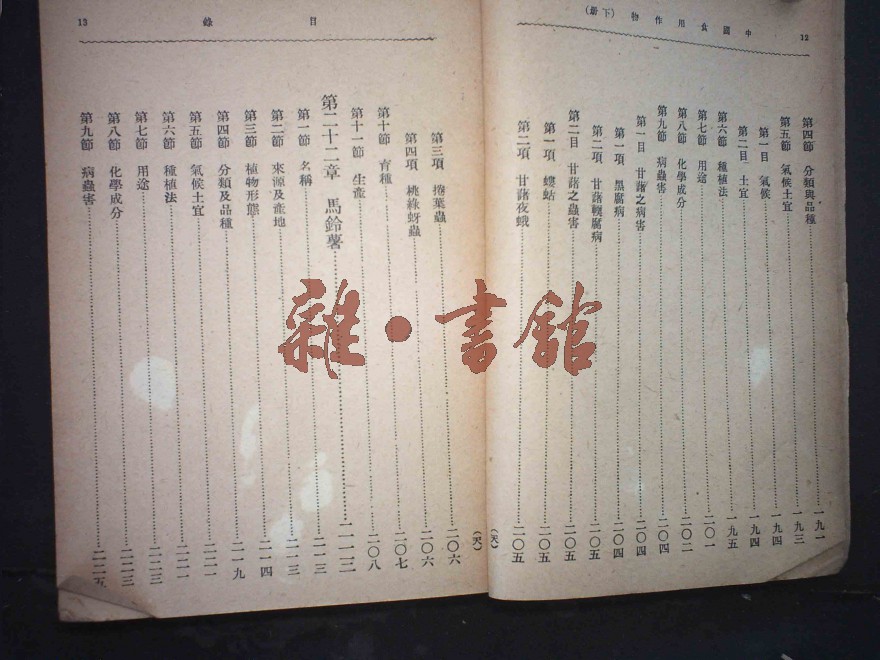 12
中國食用作物(下册)
第四節 分類與品種 一九一
第五節 氣候土宜 一九三
第一目 氣候 一九四
第二目 土宜 一九四
第六節 種植法 一九五
第七節 用途 二〇一
第八節 化學成分 二〇二
第九節 病蟲害 二〇四
第一目 甘藷之病害 二〇四
第一項 黑腐病 二〇四
第二項 甘藷輭腐病 二〇五
第二目 甘藷之蟲害 二〇五
第一項 螻蛄 二〇五
第二項 甘藷夜蛾 二〇五
目錄
13
第三項 捲葉蟲 二〇六
第四項 桃綠蚜蟲 二〇六
第十節 育種 二〇七
第十一節 生產 二〇八
第二十二章 馬鈴薯 二一三
第一節 名稱 二一三
第二節 來源及產地 二一三
第三節 植物形態 二一四
第四節 分類及品種 二一九
第五節 氣候土宜 二二一
第六節 種植法 二二一
第七節 用途 二二三
第八節 化學成分 二二三
第九節 病蟲害 二二五
雜·書館